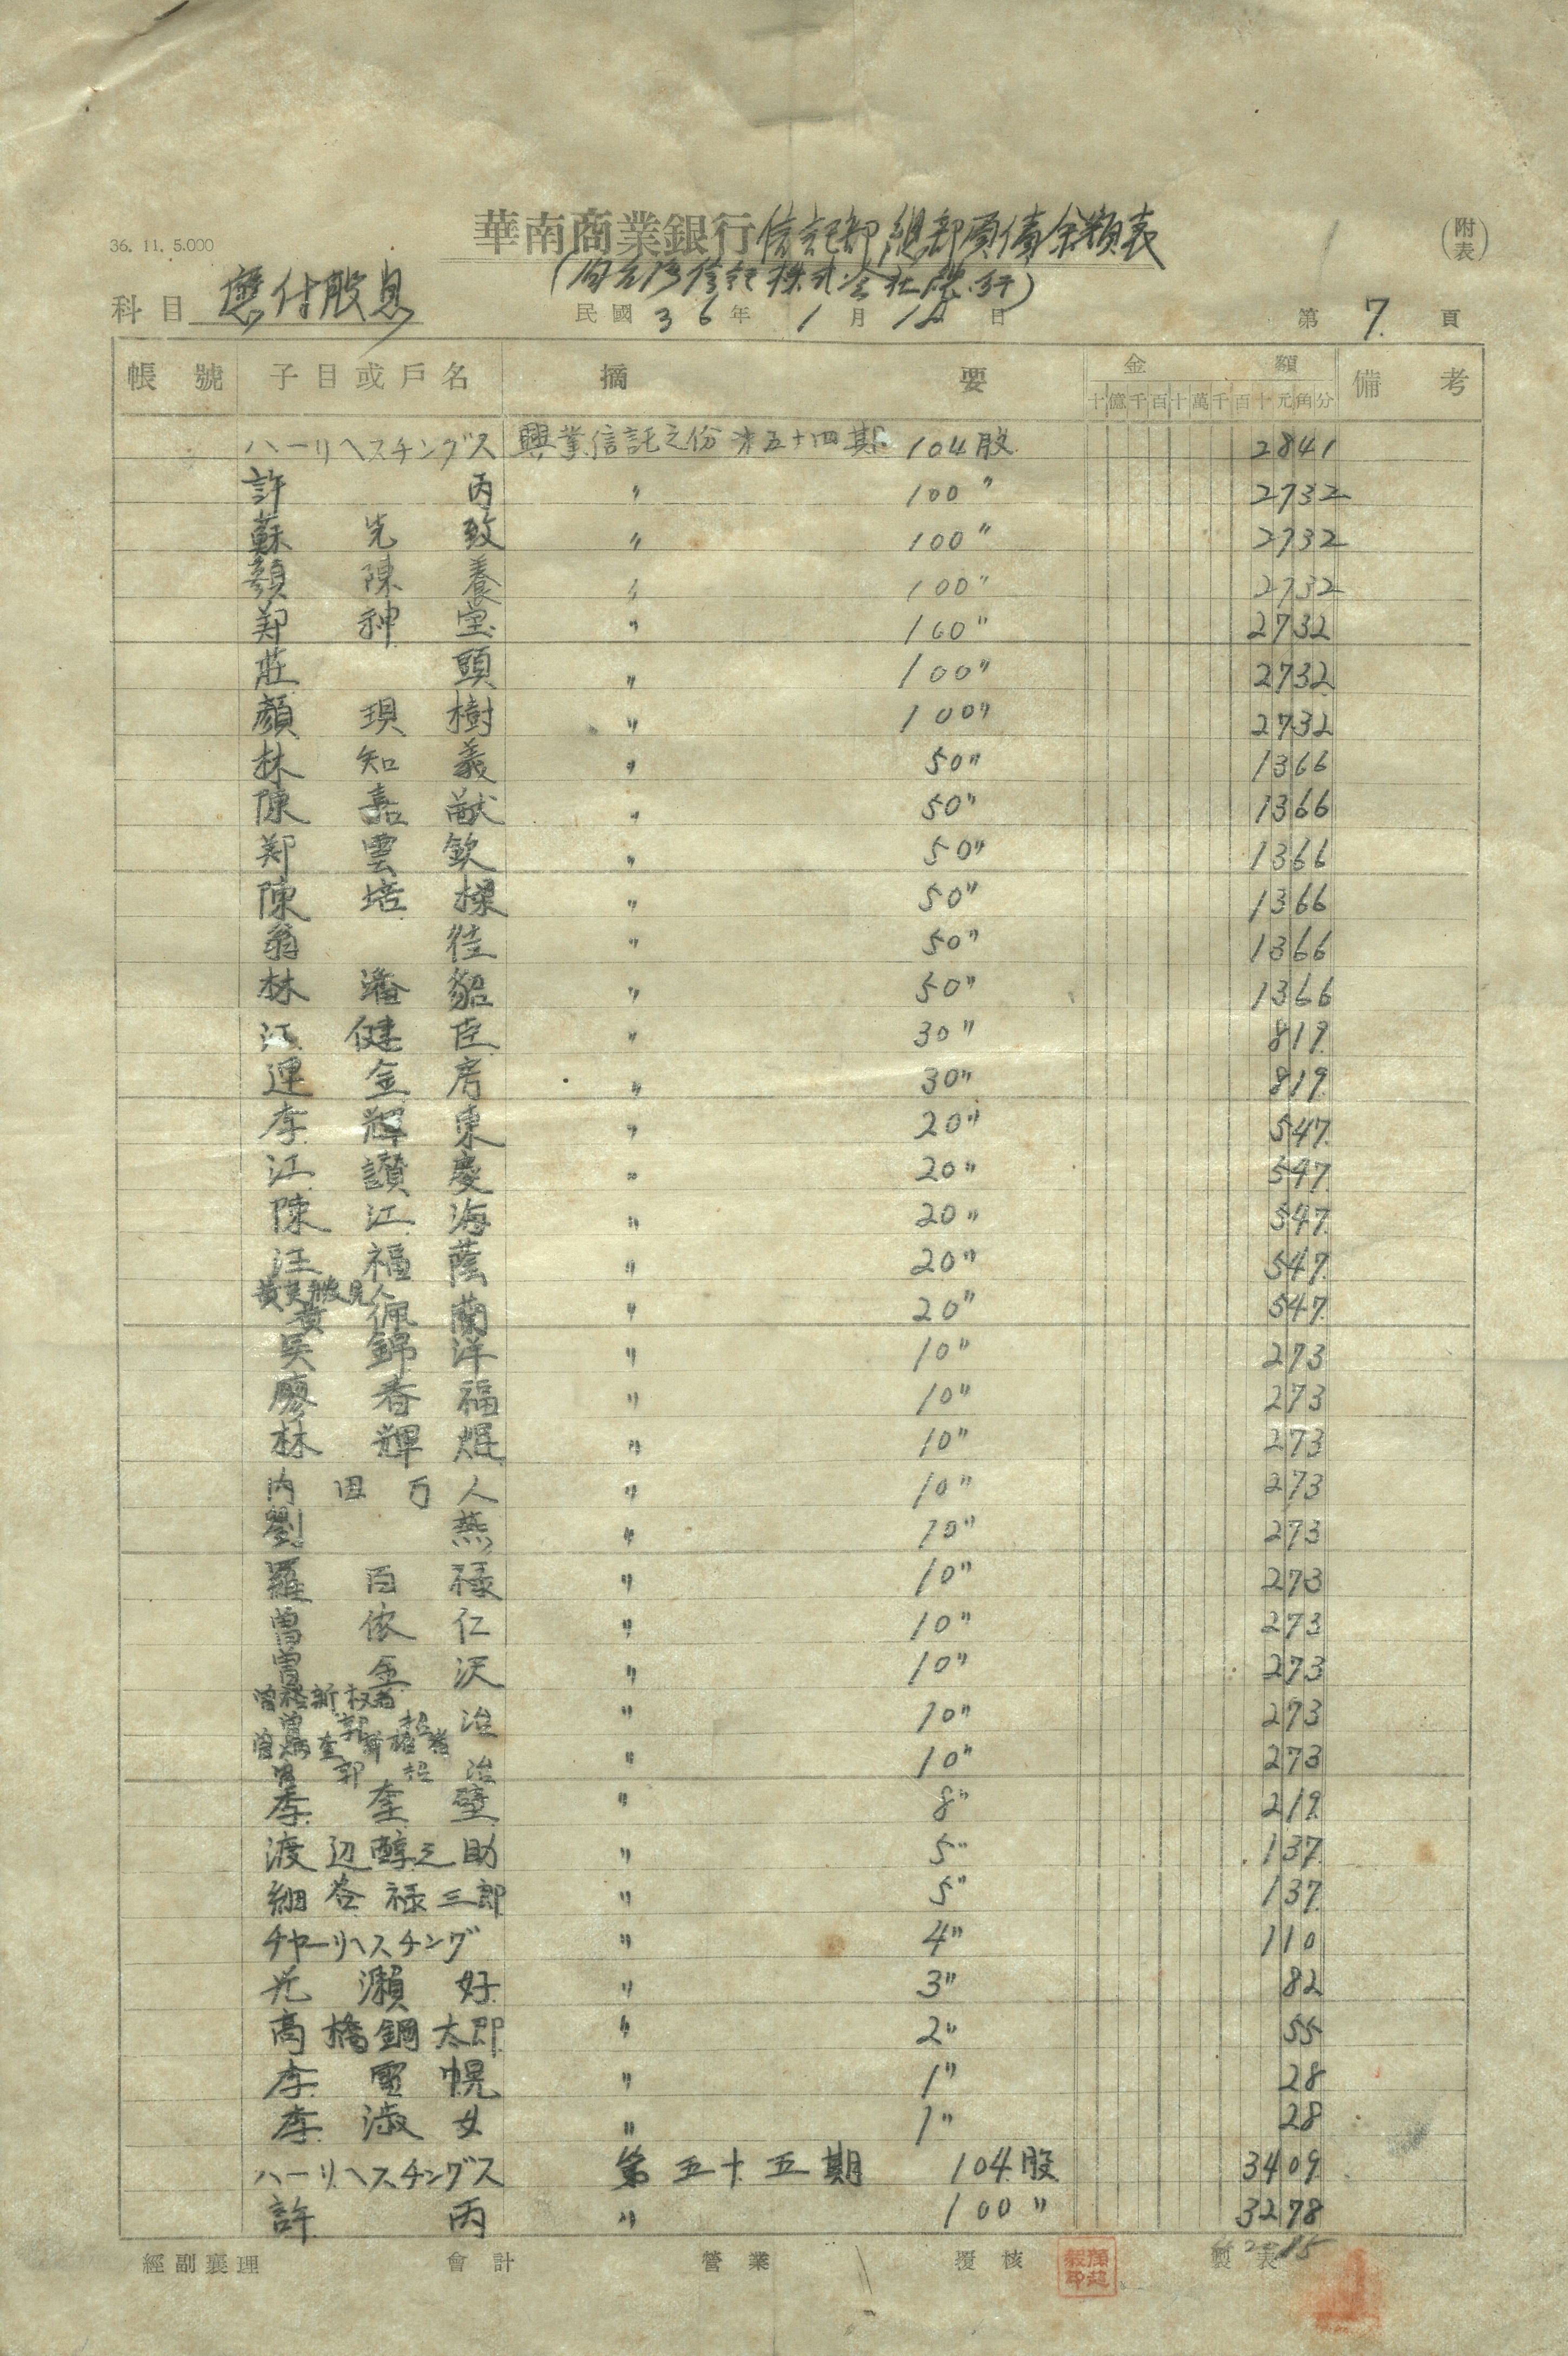 36. 11. 5.000
華南商業銀行信託部總部負債余額表
(附表)
科目 應付股息
民國36年1月12日
第7.頁
帳號 子目或戶名 摘要 金額 備考
十億千百十萬千百十元角分
ハーリヘスチングス 興業信託之份 第五十四期 104股 2841
許丙 〃 100〃 2732
蘇先致 〃 100〃 2732
顏陳養 〃 100〃 2732
鄭神宝 〃 100〃 2732
莊頭 〃 100〃 2732
顏現樹 〃 100〃 2732
林知義 〃 50〃 1366
陳嘉猷 〃 50〃 1366
鄭雲欽 〃 50〃 1366
陳培樑 〃 50〃 1366
翁 〃 50〃 1366
林潘貂 〃 50〃 1366
江健臣 〃 30〃 819
連金房 〃 30〃 819
李輝東 〃 20〃 547
江讚慶 〃 20〃 547
陳江海 〃 20〃 547
汪福蔭 〃 20〃 547
黃佩蘭 〃 20〃 547
吳錦洋 〃 10〃 273
廖香福 〃 10〃 273
林輝焜 〃 10〃 273
内田万人 〃 10〃 273
劉燕 〃 10〃 273
羅百禄 〃 10〃 273
曽依仁 〃 10〃 273
曽金沢 〃 10〃 273
曽郭治 〃 10〃 273
曽郭治 〃 10〃 273
李奎璧 〃 8〃 219
渡辺醇之助 〃 5〃 137
細谷禄三郎 〃 5〃 137
チャーリヘスチング 〃 4〃 110
光瀨好 〃 3〃 82
高橋鋼太郎 〃 2〃 55
李雪幌 〃 1〃 28
李淑女 〃 1〃 28
ハーリヘスチングス 第五十五期 104股 3409
許丙 〃 100〃 3278
經副襄理 會計 營業 覆核 製表